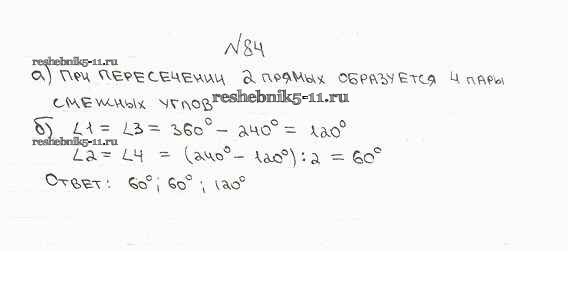 №84
reshebnik5-11.ru
а) При пересечении 2 прямых образуется 4 пары
смежных углов
reshebnik5-11.ru
б) ∠1 = ∠3 = 360° - 240° = 120°
reshebnik5-11.ru
∠2 = ∠4 = (240° - 120°) : 2 = 60°
Ответ: 60°; 60°; 120°